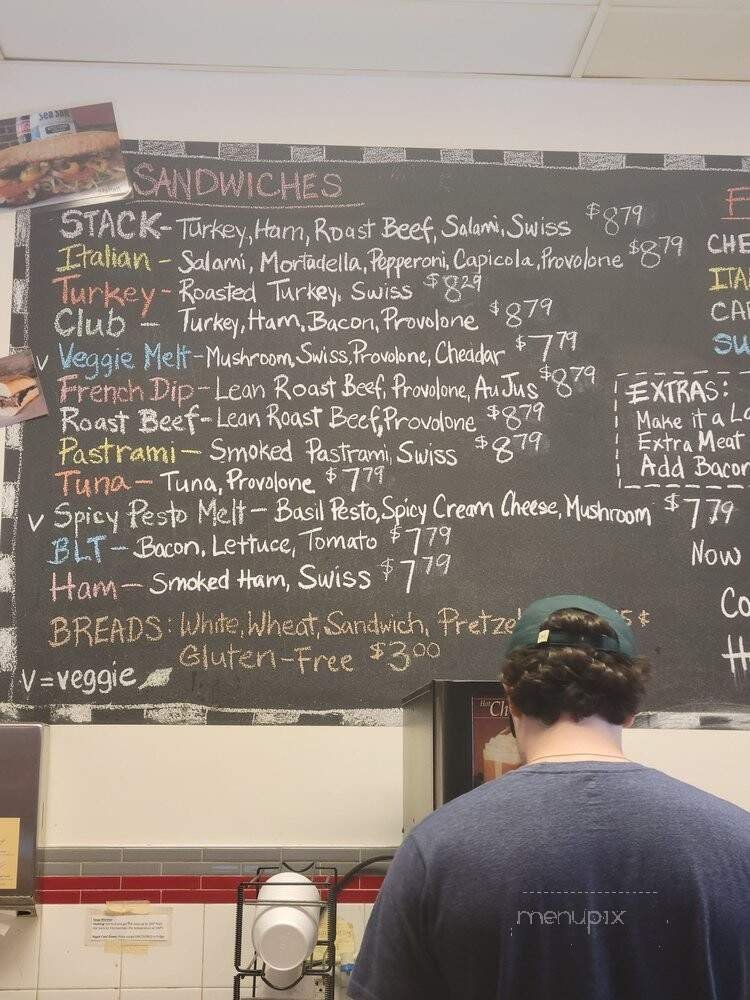 SANDWICHES
STACK- Turkey, Ham, Roast Beef, Salami, Swiss $8.79
Italian - Salami, Mortadella, Pepperoni, Capicola, Provolone $8.79
Turkey- Roasted Turkey, Swiss $8.29
Club - Turkey, Ham, Bacon, Provolone $8.79
V Veggie Melt- Mushroom, Swiss, Provolone, Cheddar $7.79
French Dip- Lean Roast Beef, Provolone, Au Jus $8.79
Roast Beef- Lean Roast Beef, Provolone $8.79
Pastrami- Smoked Pastrami, Swiss $8.79
Tuna- Tuna, Provolone $7.79
V Spicy Pesto Melt- Basil Pesto, Spicy Cream Cheese, Mushroom $7.79
BLT- Bacon, Lettuce, Tomato $7.79
Ham- Smoked Ham, Swiss $7.79
BREADS: White, Wheat, Sandwich, Pretze 5¢
Gluten-Free $3.00
V=veggie
CHE
ITA
CA
SU
EXTRAS:
Make it a La
Extra Meat
Add Bacon
Now
Co
H
Hot Ch
menupix